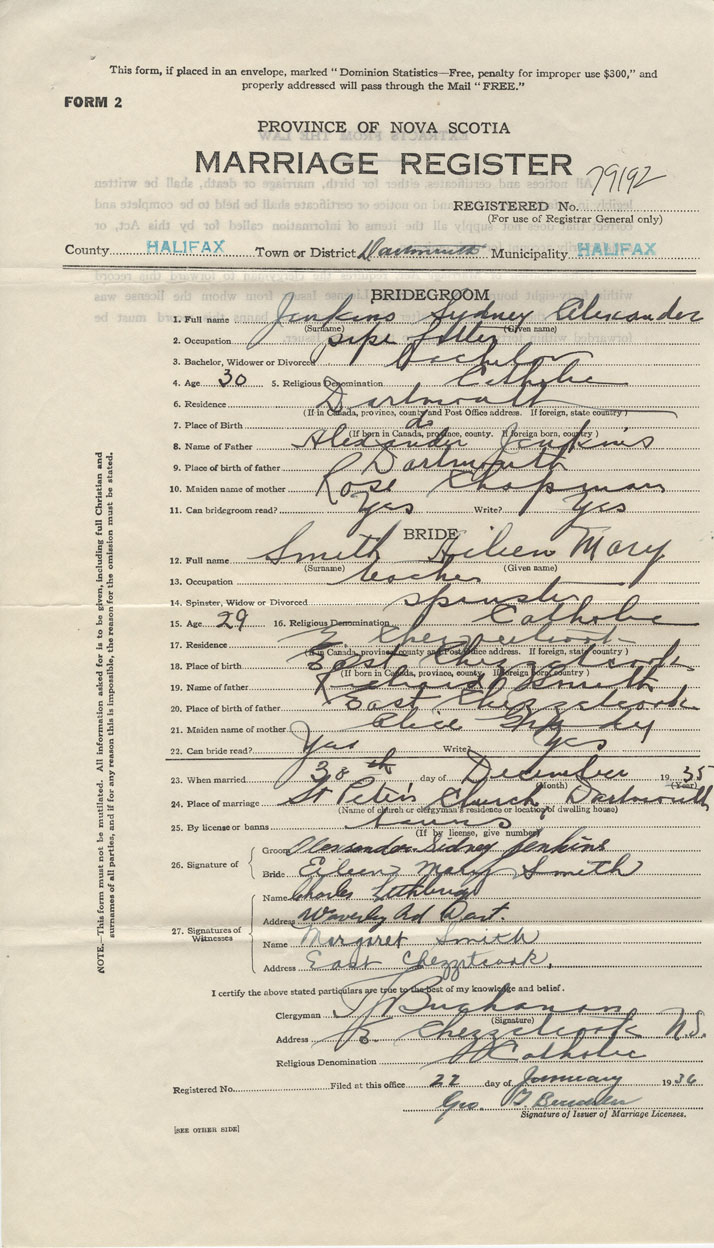 This form, if placed in an envelope, marked "Dominion Statistics—Free, penalty for improper use $300," and
properly addressed will pass through the Mail "FREE."
FORM 2
PROVINCE OF NOVA SCOTIA
MARRIAGE REGISTER
79192
REGISTERED No.
(For use of Registrar General only)
County HALIFAX Town or District Dartmouth Municipality HALIFAX
BRIDEGROOM
1. Full name Jenkins Sydney Alexander
(Surname) (Given name)
2. Occupation pipe fitter
3. Bachelor, Widower or Divorced bachelor
4. Age 30 5. Religious Denomination Catholic
6. Residence Dartmouth
(If in Canada, province, county and Post Office address. If foreign, state country)
7. Place of Birth do
(If born in Canada, province, county. If foreign born, country)
8. Name of Father Alexander Jenkins
9. Place of birth of father Dartmouth
10. Maiden name of mother Rose Chapman
11. Can bridegroom read? Yes Write? Yes
BRIDE
12. Full name Smith Aileen Mary
(Surname) (Given name)
13. Occupation teacher
14. Spinster, Widow or Divorced spinster
15. Age 29 16. Religious Denomination Catholic
17. Residence E. Chezzetcook
(If in Canada, province county and Post Office address. If foreign, state country)
18. Place of birth East Chezzetcook
(If born in Canada, province, county. If foreign born, country)
19. Name of father Richard Smith
20. Place of birth of father East Chezzetcook
21. Maiden name of mother Alice
22. Can bride read? Yes Write? Yes
23. When married 30th day of December 1935
(Month) (Year)
24. Place of marriage St Peter's Church, Dartmouth
(Name of church or clergyman's residence or location of dwelling house)
25. By license or banns banns
(If by license, give number)
26. Signature of
Groom Alexander Sidney Jenkins
Bride Eileen Mary Smith
27. Signatures of Witnesses
Name Charles
Address Waverley Rd Dart.
Name Margaret Smith
Address East Chezzetcook.
I certify the above stated particulars are true to the best of my knowledge and belief.
Clergyman Buchanan
(Signature)
Address E. Chezzetcook N.S.
Religious Denomination Catholic
Registered No. Filed at this office 22 day of January 1936
Geo.
Signature of Issuer of Marriage Licenses.
[SEE OTHER SIDE]
NOTE.—This form must not be mutilated. All information asked for is to be given, including full Christian and
surnames of all parties, and if for any reason this is impossible, the reason for the omission must be stated.